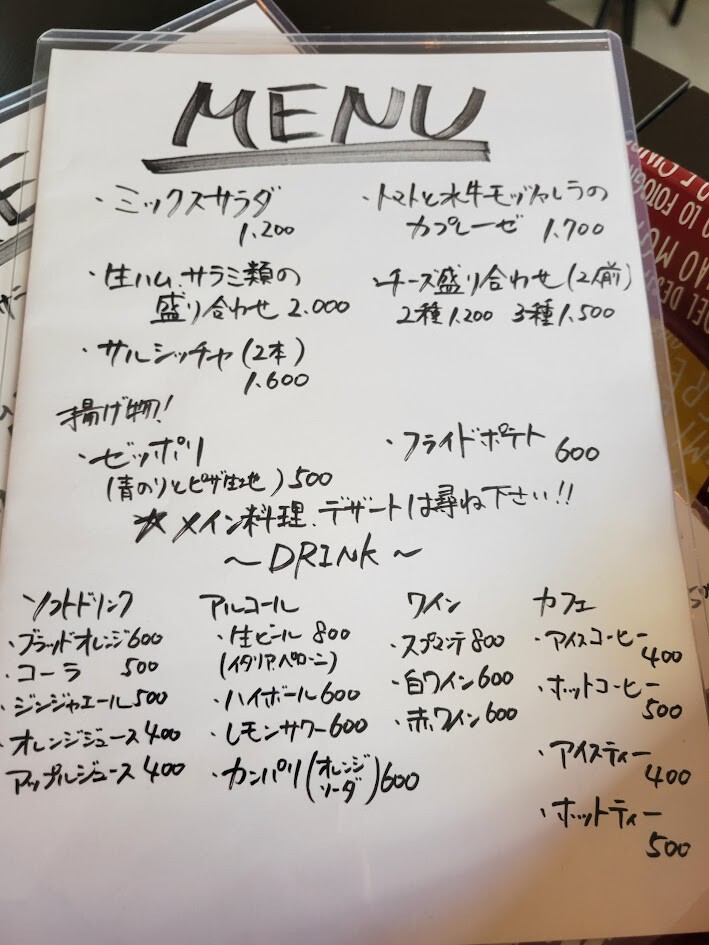 MENU
・ミックスサラダ
1.200
・トマトと水牛モッツァレラの
カプレーゼ 1.700
・生ハム、サラミ類の
盛り合わせ 2.000
・チーズ盛り合わせ(2人前)
2種 1.200 3種 1.500
・サルシッチャ(2本)
1.600
揚げ物!
・ゼッポリ
(青のりとピザ生地)500
・フライドポテト 600
☆メイン料理、デザートは尋ね下さい!!
〜DRINK〜
ソフトドリンク
・ブラッドオレンジ600
・コーラ 500
・ジンジャエール500
・オレンジジュース400
アップルジュース400
アルコール
・生ビール 800
(イタリア、ペローニ)
・ハイボール600
・レモンサワー600
・カンパリ(オレンジ
ソーダ)600
ワイン
・スプマンテ800
・白ワイン600
・赤ワイン600
カフェ
・アイスコーヒー
400
・ホットコーヒー
500
・アイスティー
400
・ホットティー
500